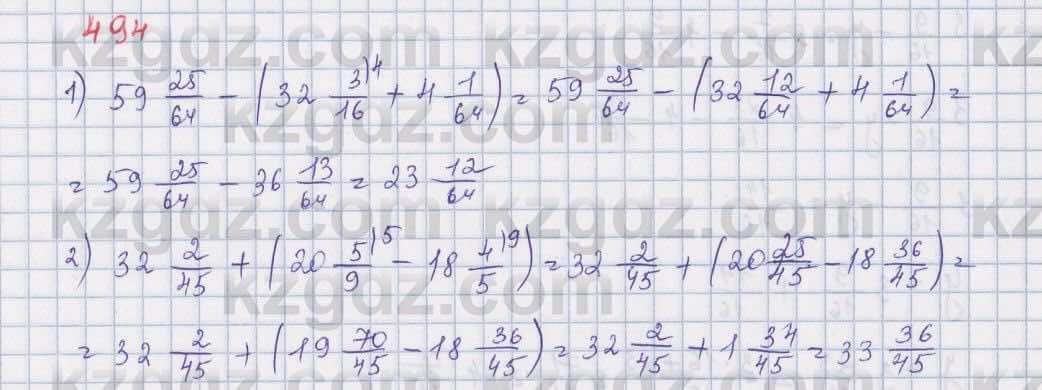 494
1) 59 25/64 - (32 3/16 )4 + 4 1/64) = 59 25/64 - (32 12/64 + 4 1/64) =
= 59 25/64 - 36 13/64 = 23 12/64
2) 32 2/45 + (20 5/9 )5 - 18 4/5 )9) = 32 2/45 + (20 25/45 - 18 36/45) =
= 32 2/45 + (19 70/45 - 18 36/45) = 32 2/45 + 1 34/45 = 33 36/45
kzgdz.com